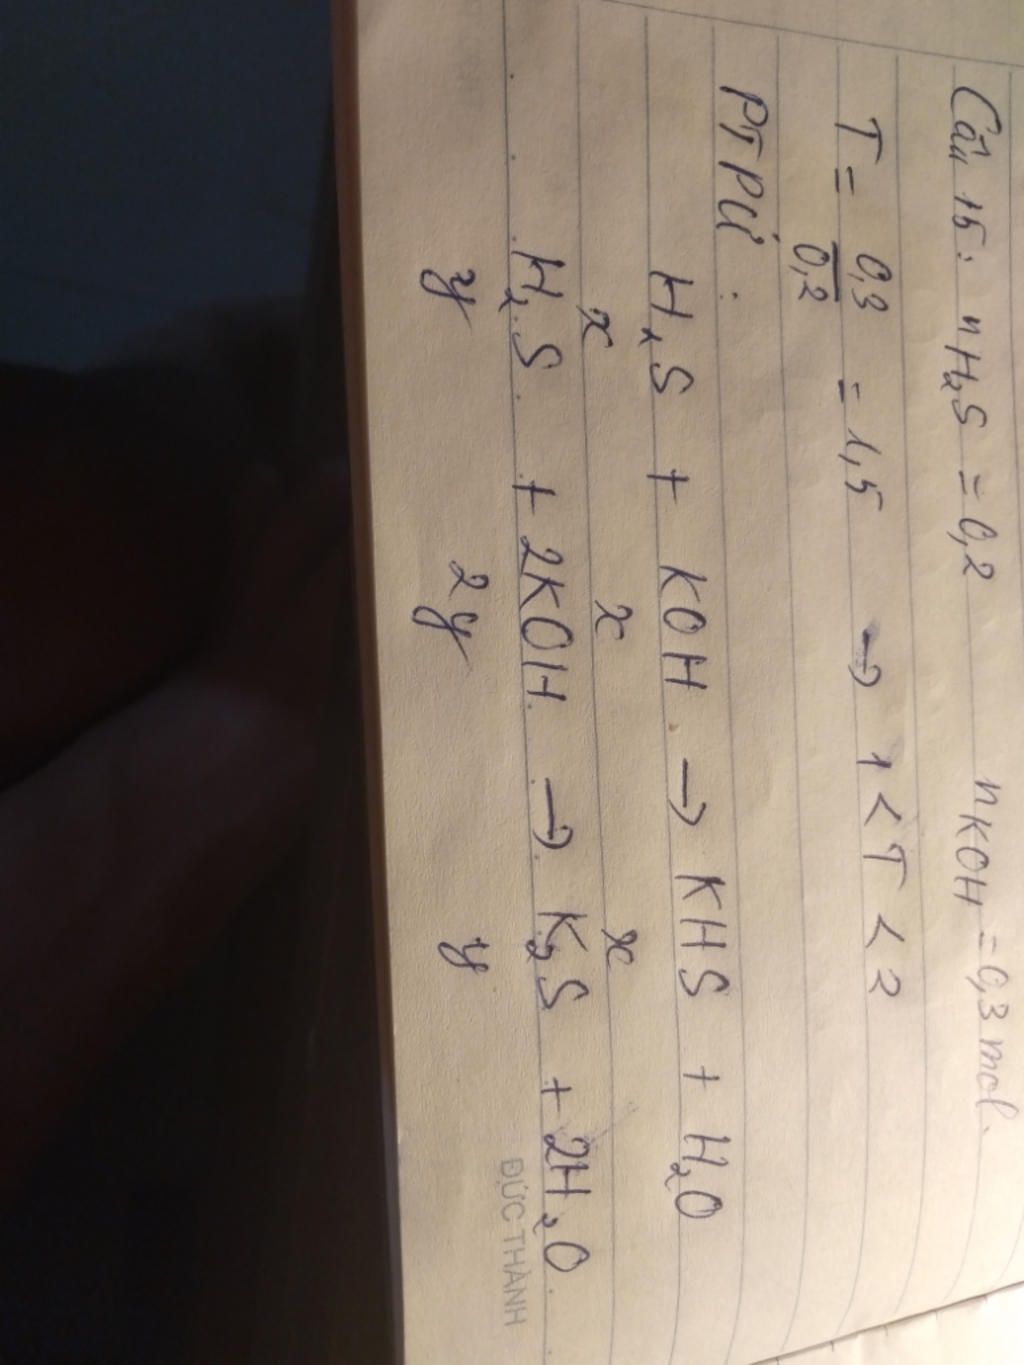 Câu 15: nH₂S = 0,2 nKOH = 0,3 mol.
T = 0,3/0,2 = 1,5 → 1 < T < 2
PTPƯ:
H₂S + KOH → KHS + H₂O
x x x
H₂S + 2KOH → K₂S + 2H₂O.
y 2y y
ĐỨC THÀNH